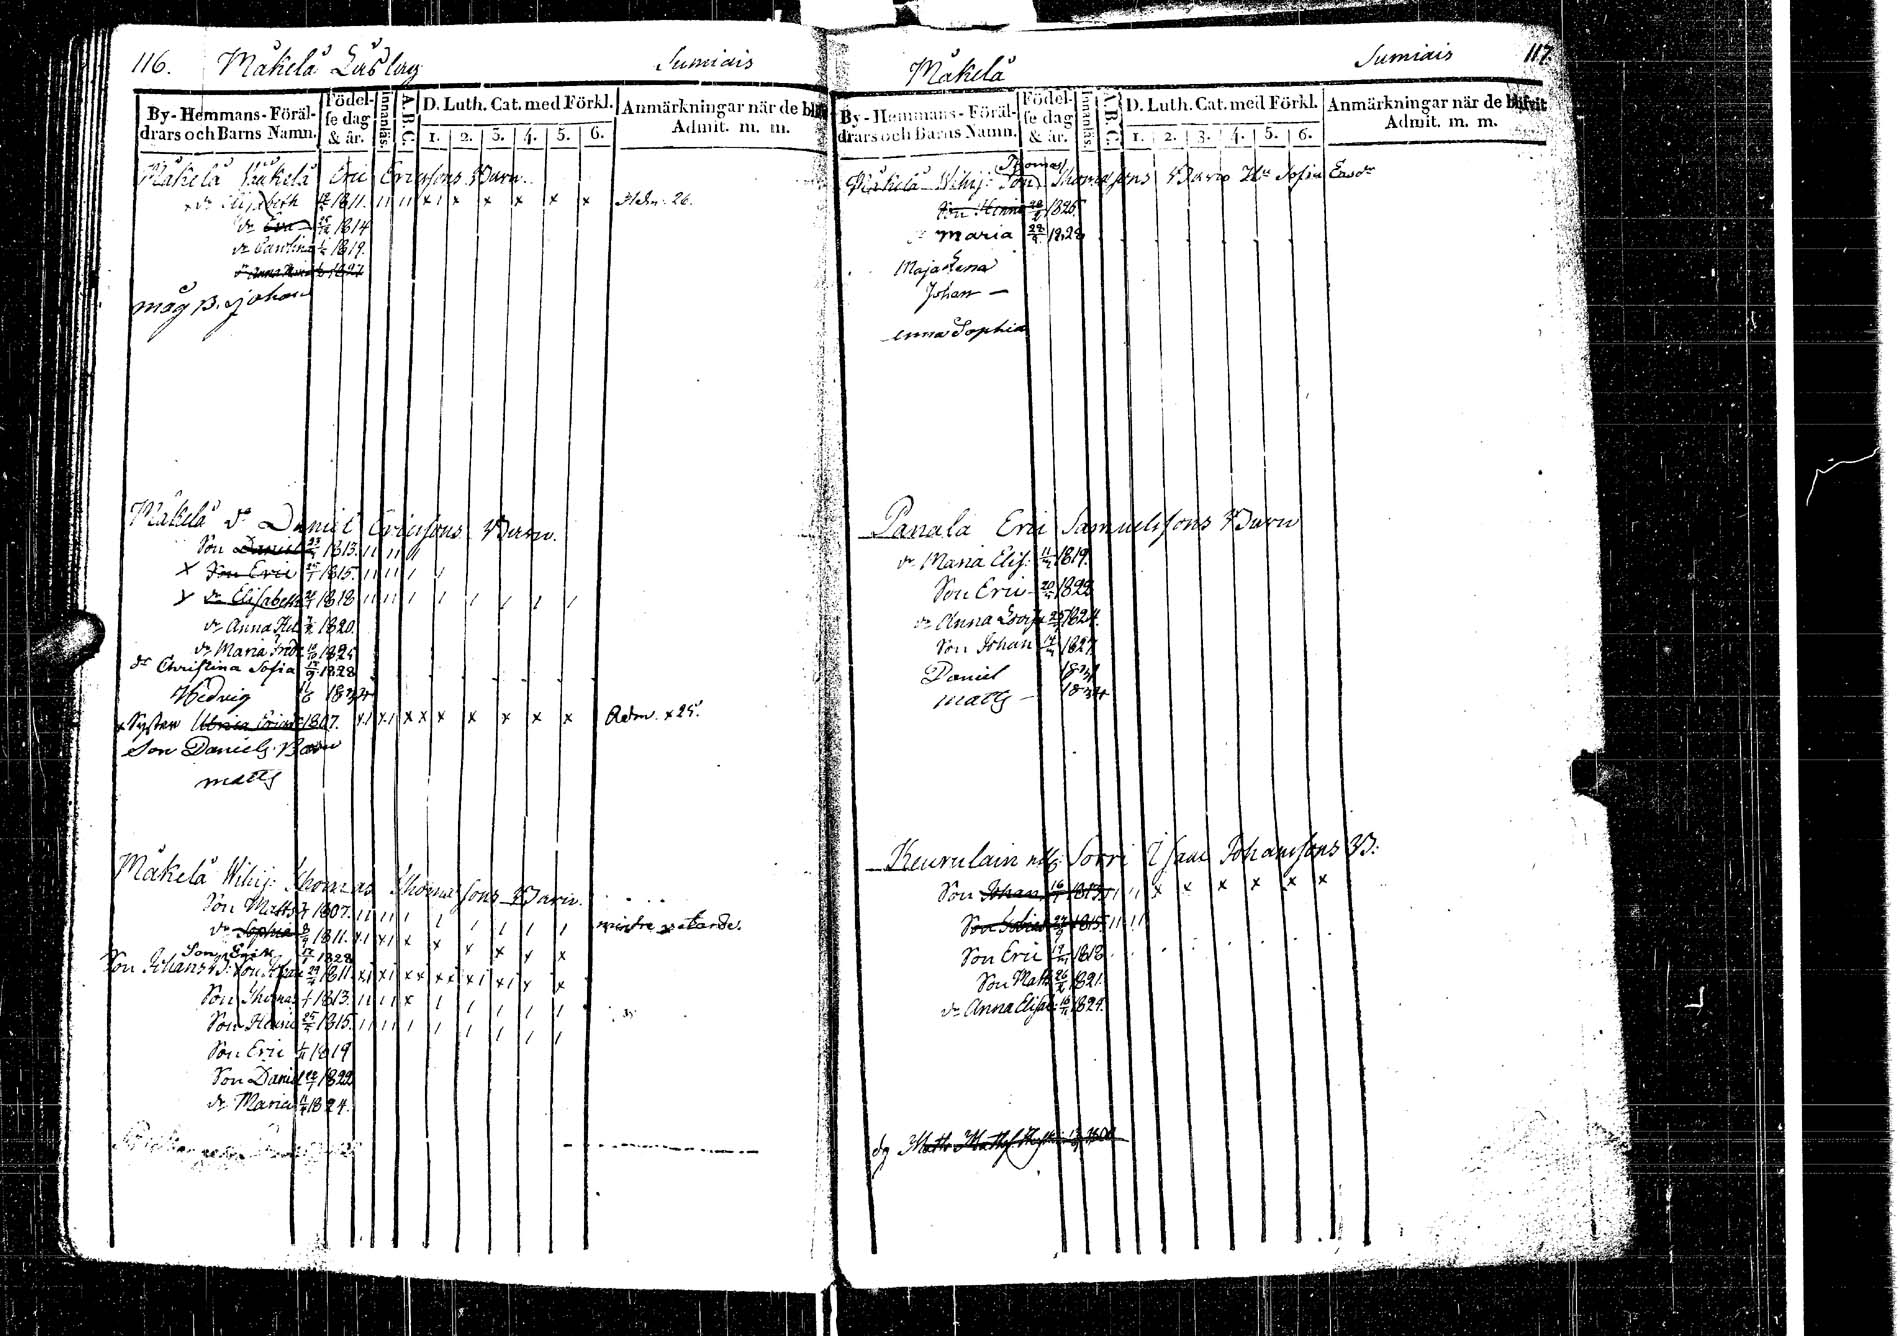 116. Mäkelä Läslag Sumiais
By-Hemmans-Föräl-drars och Barns Namn. Födel-se dag & år. Innanläs. A.B.C. D. Luth. Cat. med Förkl. 1. 2. 3. 4. 5. 6. Anmärkningar när de bli Admit. m. m.
Mäkelä Eric Ericssons Barn.
dr Elisabeth 1811. Adm. 26.
dr Eva 1814
dr Carolina 1819.
1827
måg B. Johan
Mäkelä dr Daniel Ericssons Barn.
Son Daniel 23 1813.
x Son Eric 25 1815.
x dr Elisabeth 1818
dr Anna Hel 1820.
dr Maria 1825
dr Christina Sofia 1828
Hedvig 1834
x Syster 1807. Adm. x 25.
Son Daniels Barn
Matts
Mäkelä Wihij: Thomas Thomassons Barn.
Son Matts 1807.
dr Sophia 1811.
Son Erik 1828
Son Johans B: Son Isaac 29 1811.
Son Thomas 1813.
Son Henric 25 1815.
Son Eric 1819
Son Daniel 22 1822
dr Maria 11 1824.
Mäkelä Sumiais 117.
By-Hemmans-Föräl-drars och Barns Namn. Födel-se dag & år. Innanläs. A.B.C. D. Luth. Cat. med Förkl. 1. 2. 3. 4. 5. 6. Anmärkningar när de blifvit Admit. m. m.
Thomas
Mäkelä Wihij: Son Thomassons Barn Hu Sofia Ersdr
Son Henric 1825.
dr Maria 22 1828
Maja Lena
Johan —
Anna Sophia
Panala Eric Samuelssons Barn
dr Maria Elis: 11 1819.
Son Eric 20 1822
dr Anna Lovisa 25 1824.
Son Johan 14 1827.
Daniel 1831
Matts — 1834
Keurulain ndg: Sorri Isaac Johanssons B:
Son Johan 16 1813.
Son Gabriel 27 1815.
Son Eric 19 1818.
Son Matts 26 1821.
dr Anna Elisab: 16 1824.
dg Matts Matts